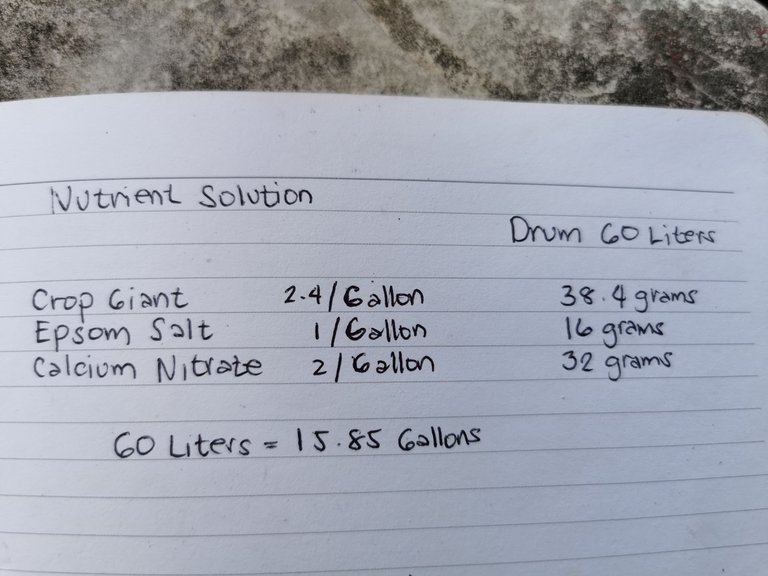 Nutrient Solution
Drum 60 Liters
Crop Giant 2.4/Gallon 38.4 grams
Epsom Salt 1/Gallon 16 grams
Calcium Nitrate 2/Gallon 32 grams
60 Liters = 15.85 Gallons